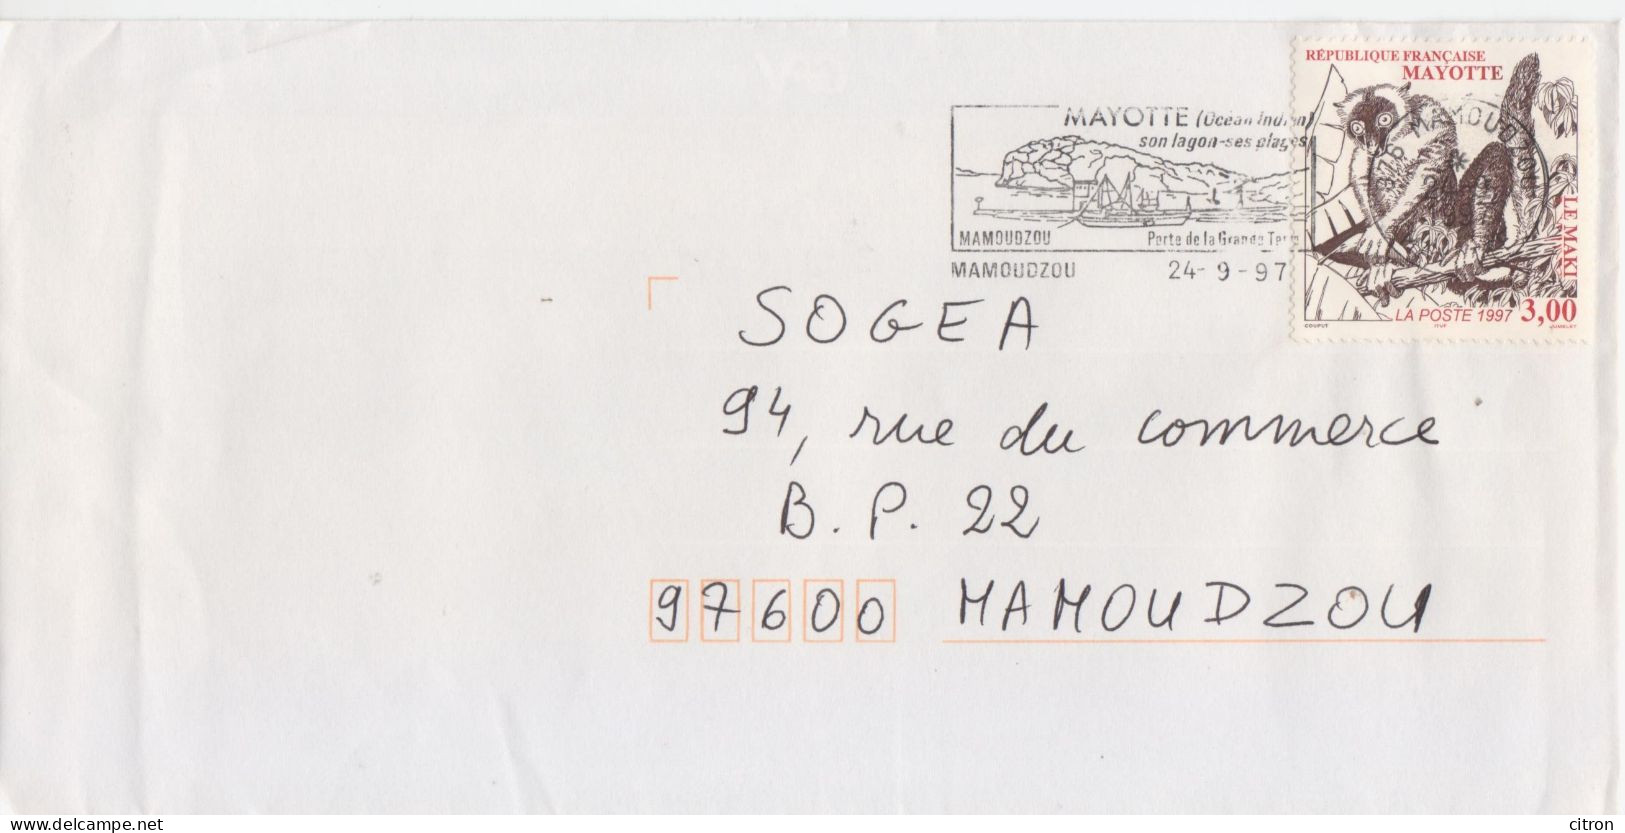 RÉPUBLIQUE FRANÇAISE
MAYOTTE
MAYOTTE (Océan Indien)
son lagon-ses plages
976 MAMOUDZOU
LE MAKI
MAMOUDZOU Porte de la Grande Terre
MAMOUDZOU 24-9-97
LA POSTE 1997 3,00
COUPUT ITVF JUMELET
SOGEA
94, rue du commerce
B.P. 22
97600 MAMOUDZOU
delcampe.net
citron